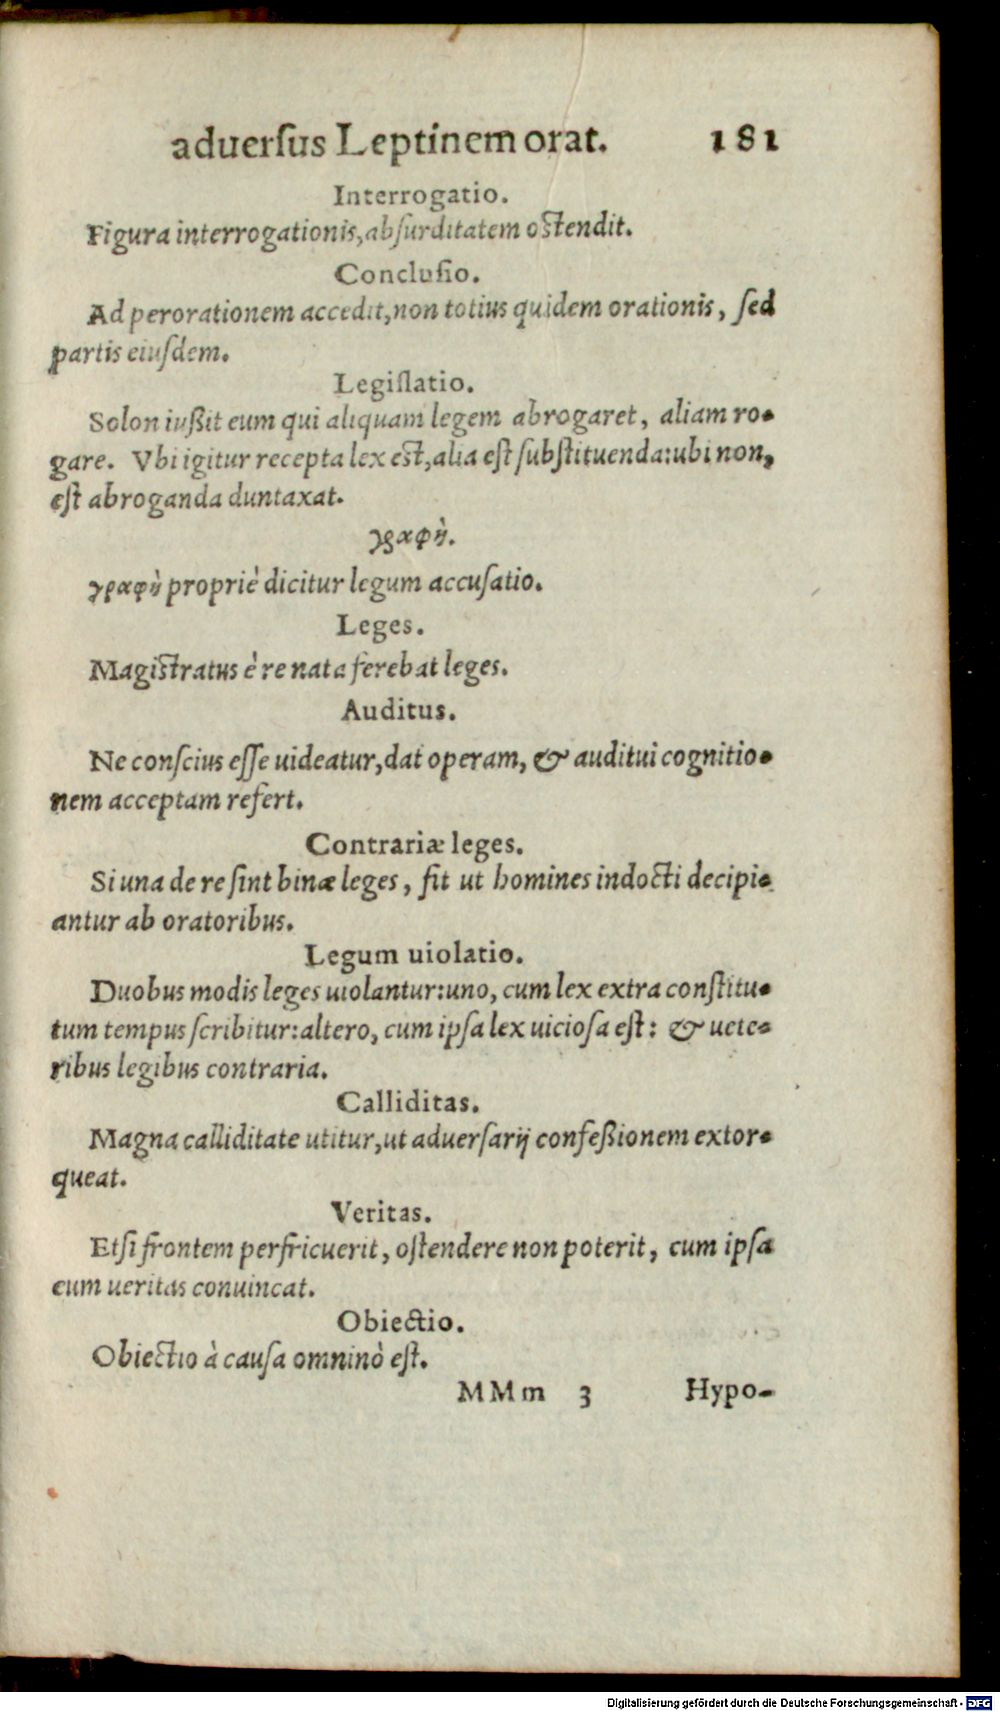 aduerſus Leptinem orat. 181
Interrogatio.
Figura interrogationis, abſurditatem oſtendit.
Concluſio.
Ad perorationem accedit, non totius quidem orationis, ſed
partis eiuſdem.
Legiſlatio.
Solon iußit eum qui aliquam legem abrogaret, aliam ro-
gare. Vbi igitur recepta lex eſt, alia eſt ſubſtituenda: ubi non,
eſt abroganda duntaxat.
γραφὴ.
γραφὴ propriè dicitur legum accuſatio.
Leges.
Magiſtratus è re nata ferebat leges.
Auditus.
Ne conſcius eſſe uideatur, dat operam, & auditui cognitio-
nem acceptam refert.
Contrariæ leges.
Si una de re ſint binæ leges, fit ut homines indocti decipi-
antur ab oratoribus.
Legum uiolatio.
Duobus modis leges uiolantur: uno, cum lex extra conſtitu-
tum tempus ſcribitur: altero, cum ipſa lex uicioſa eſt: & uete-
ribus legibus contraria.
Calliditas.
Magna calliditate utitur, ut aduerſarij confeßionem extor-
queat.
Veritas.
Etſi frontem perfricuerit, oſtendere non poterit, cum ipſa
eum ueritas conuincat.
Obiectio.
Obiectio à cauſa omninò eſt.
MMm 3 Hypo-
Digitalisierung gefördert durch die Deutsche Forschungsgemeinschaft - DFG